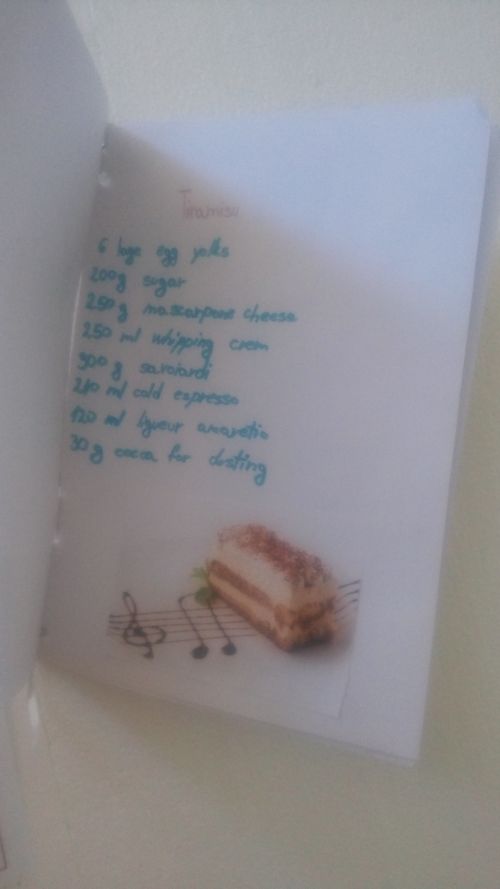 Tiramisu
6 large egg yolks
200g sugar
250g mascarpone cheese
250 ml whipping crem
300 g savoiardi
210 ml cold espresso
120 ml liqueur amaretio
30 g cocoa for dusting